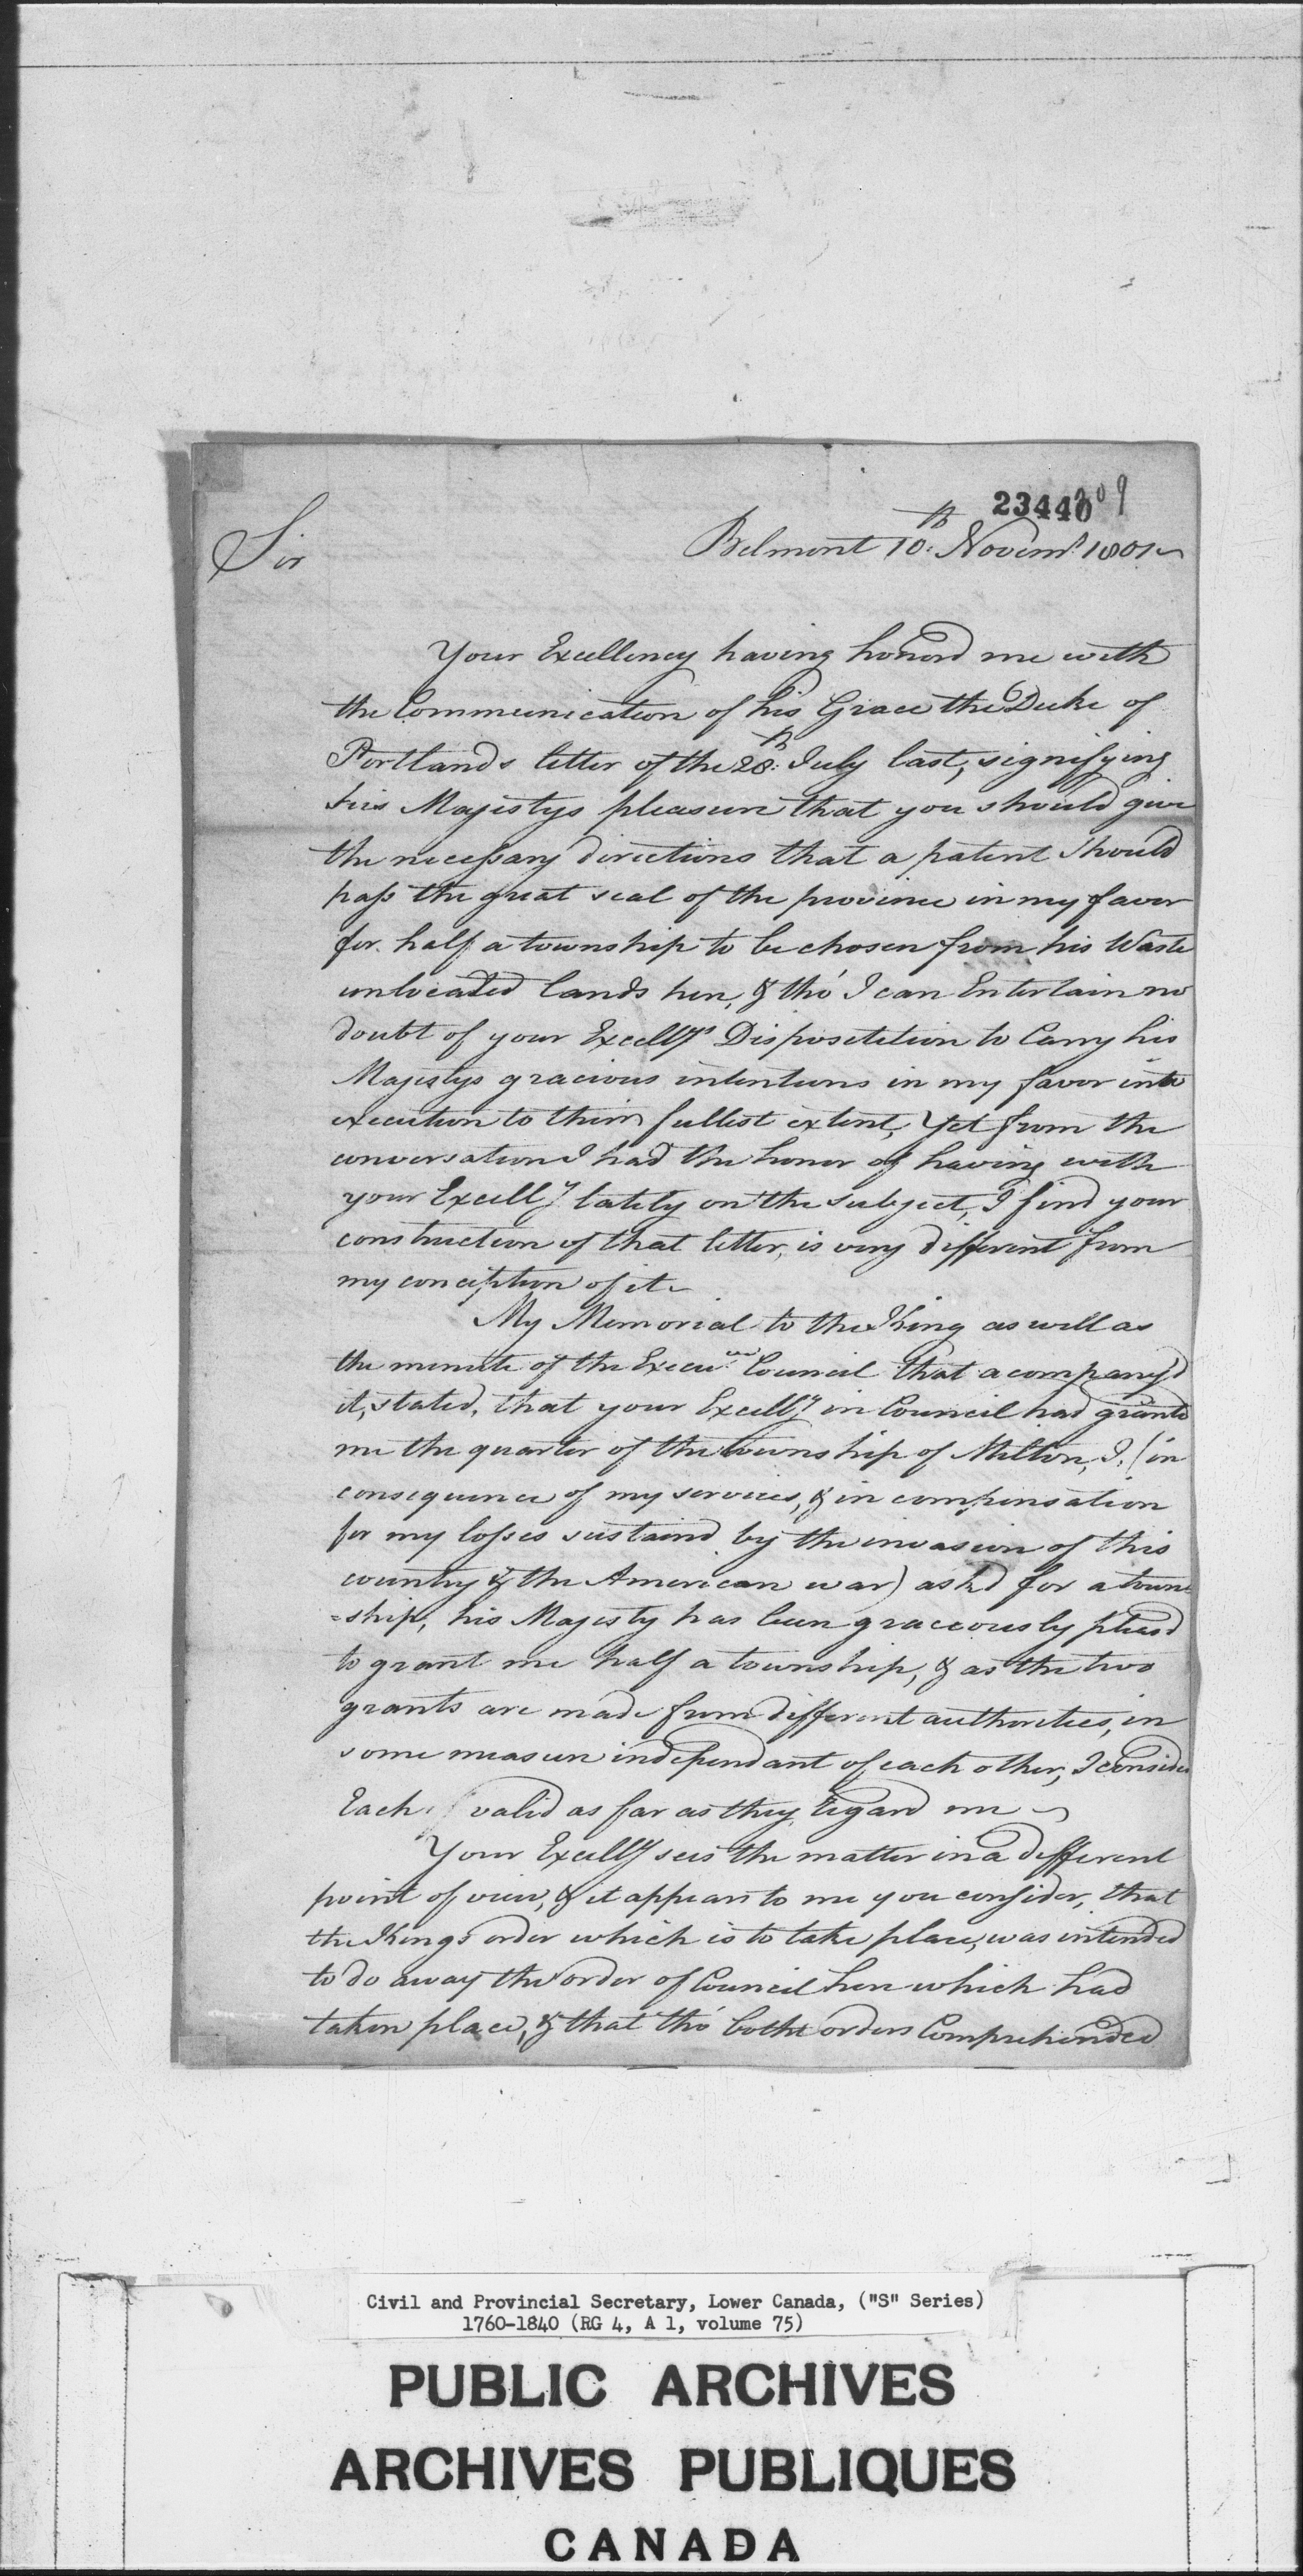 23440
209
Sir
Belmont 10:th Novemr. 1801
Your Excellency having honord me with
the Communication of his Grace the Duke of
Portlands letter of the 28:th July last, signifying
his Majestys pleasure that you should give
the necessary directions that a patent should
pass the great seal of the province in my favor
for half a township to be chosen from his Waste
unlocated lands here, & tho' I can Entertain no
doubt of your Excellys Dispositition to Carry his
Majestys gracious intentions in my favor into
execution to their fullest extent, Yet from the
conversation I had the honor of having with
your Excelly lately on the subject, I find your
construction of that letter, is very different from
my conception of it
My Memorial to the King as well as
the minute of the Execu:ve Council that acompany'd
it, stated, that your Excelly in Council had granted
me the quarter of the township of Milton, I, (in
consequence of my services, & in compensation
for my losses sustaind by the invasion of this
country & the American war) ask'd for a town
=ship, his Majesty has been graceously pleasd
to grant me half a township, & as the two
grants are made from different authorities, in
some measure independant of each other, I consider
Each valid as far as they regard me
Your Excelly sees the matter in a different
point of view, & it appears to me you consider, that
the Kings order which is to take place, was intended
to do away the order of Council here which had
taken place, & that tho' both orders Comprehended
Civil and Provincial Secretary, Lower Canada, ("S" Series)
1760-1840 (RG 4, A 1, volume 75)
PUBLIC ARCHIVES
ARCHIVES PUBLIQUES
CANADA